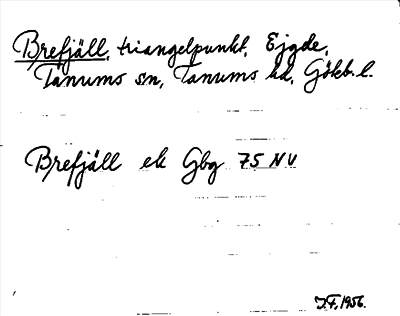 Brefjäll, triangelpunkt, Ejgde,
Tanums sn, Tanums hd, Gökb. l.
Brefjäll ek Gbg 75 NV
J.F. 1956.